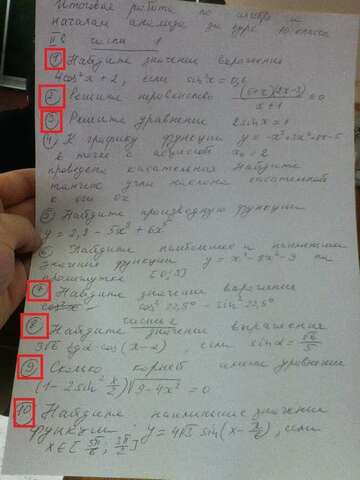 Итоговая работа по алгебре и
началам анализа за курс 10 класса
II в части 1
① Найдите значение выражения
4cos²x + 2, если sin²x = 0,6
② Решите неравенство (6+x)(2x-3)/(x+1) ≥ 0
③ Решите уравнение 2sinx = 1
④ К графику функции y =
в точке с абсциссой x₀ = 2
проведена касательная. Найдите
тангенс угла наклона касательной
к оси ox
⑤ Найдите производную функции
y = 2,8 - 5x⁸ + 6x
⑥ Найдите наибольшее и наименьшее
значения функции на
промежутке
⑦ Найдите значение выражения
cos² 22,5° - sin² 22,5°
часть 2
⑧ Найдите значение выражения
если sinα =
⑨ Сколько корней имеет уравнение
(1 - 2sin² x/2)√(9-4x²) = 0
⑩ Найдите наименьшее значение
функции y = 4√3 sin(x - если
x∈[